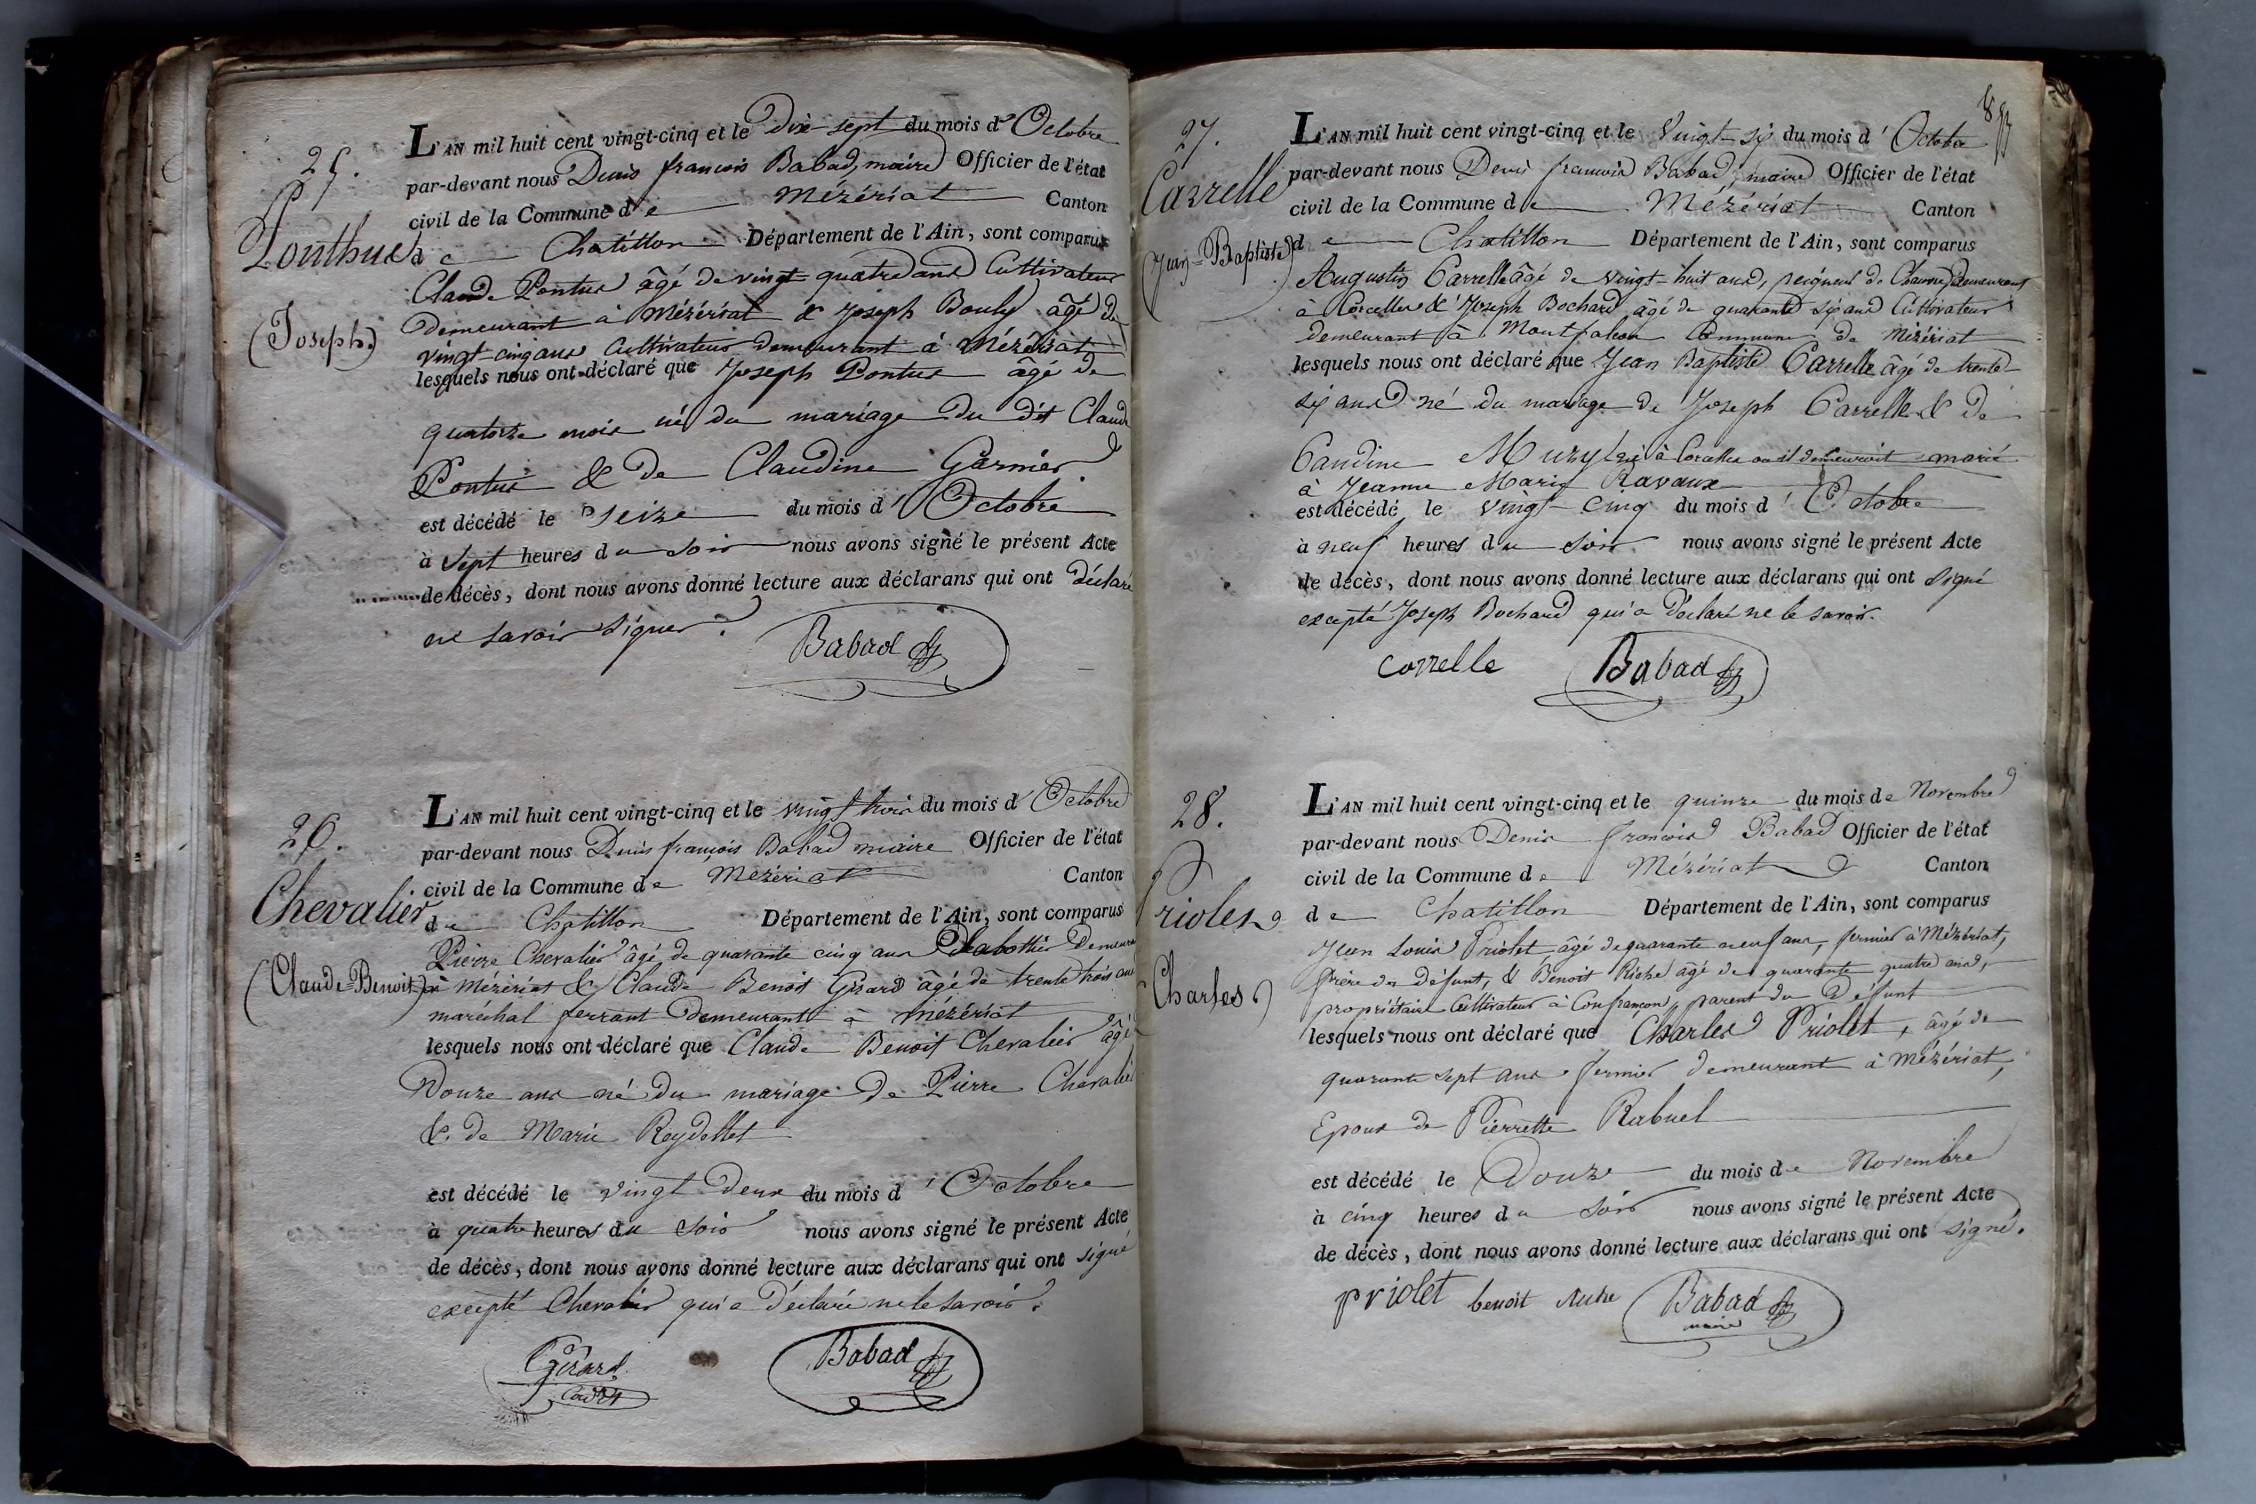 25.
Ponthus
(Joseph)
L'AN mil huit cent vingt-cinq et le Dix-sept du mois d' Octobre
par-devant nous Denis françois Babad, maire Officier de l'état
civil de la Commune de Mézériat Canton
de Chatillon Département de l'Ain, sont comparus
Claude Pontus âgé de vingt quatre ans Cultivateur
demeurant à Mézériat & Joseph Bouly âgé de
vingt-cinq ans Cultivateur demeurant à Mézériat
lesquels nous ont déclaré que Joseph Pontus âgé de
quatorze mois né du mariage du dit Claude
Pontus & de Claudine Garnier
est décédé le seize du mois d' Octobre
à sept heures du soir nous avons signé le présent Acte
de décès, dont nous avons donné lecture aux déclarans qui ont déclaré
ne savoir signer.
Babad
26.
Chevalier
(Claude-Benoit)
L'AN mil huit cent vingt-cinq et le vingt trois du mois d' Octobre
par-devant nous Denis françois Babad maire Officier de l'état
civil de la Commune de Mézériat Canton
de Chatillon Département de l'Ain, sont comparus
Pierre Chevalier âgé de quarante cinq ans Sabottier demeura
à Mézériat & Claude Benoit Girard âgé de trente trois ans
maréchal ferrant demeurant à mézériat
lesquels nous ont déclaré que Claude Benoit Chevalier âgé
Douze ans né du mariage de Pierre Chevalier
& de Marie Reydellet
est décédé le vingt deux du mois d' Octobre
à quatre heures du soir nous avons signé le présent Acte
de décès, dont nous avons donné lecture aux déclarans qui ont signé
excepté Chevalier qui a déclaré ne le savoir.
Girard
Babad
27.
Carrelle
(Jean-Baptiste)
L'AN mil huit cent vingt-cinq et le Vingt-six du mois d' Octobre
par-devant nous Denis françois Babad, maire Officier de l'état
civil de la Commune de Mézériat Canton
de Chatillon Département de l'Ain, sont comparus
Augustin Carrelle âgé de vingt-huit ans, peigneur de Chanvre demeurant
à Corcelles & Joseph Bochard âgé de quarante six ans Cultivateur
demeurant à Montfalcon Commune de Mézériat
lesquels nous ont déclaré que Jean Baptiste Carrelle âgé de trente
six ans né du mariage de Joseph Carrelle & de
Caudine Muzy né à Corcelles ou il demeuroit marié
à Jeanne Marie Ravaux
est décédé le vingt-cinq du mois d' Octobre
à neuf heures du soir nous avons signé le présent Acte
de décès, dont nous avons donné lecture aux déclarans qui ont signé
excepté Joseph Bochard qui a déclaré ne le savoir.
correlle Babad
28.
Priolet
Charles
L'AN mil huit cent vingt-cinq et le quinze du mois de Novembre
par-devant nous Denis françois Babad Officier de l'état
civil de la Commune de Mézériat Canton
de Chatillon Département de l'Ain, sont comparus
Jean Louis Priolet âgé de quarante neuf ans, fermier à Mézériat,
frère du défunt, & Benoit Riche âgé de quarante quatre ans,
propriétaire Cultivateur à Confrançon, parent du Défunt
lesquels nous ont déclaré que Charles Priolet, âgé de
quarante sept ans fermier demeurant à Mézériat,
Epoux de Pierrette Rabuel
est décédé le Douze du mois de Novembre
à cinq heures du soir nous avons signé le présent Acte
de décès, dont nous avons donné lecture aux déclarans qui ont signé.
priolet benoit Babad
maire